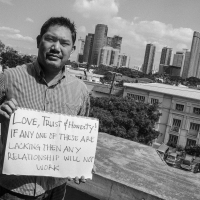 LOVE, TRUST & HONESTY!
IF ANY ONE OF THESE ARE
LACKING THEN ANY
RELATIONSHIP WILL NOT
WORK